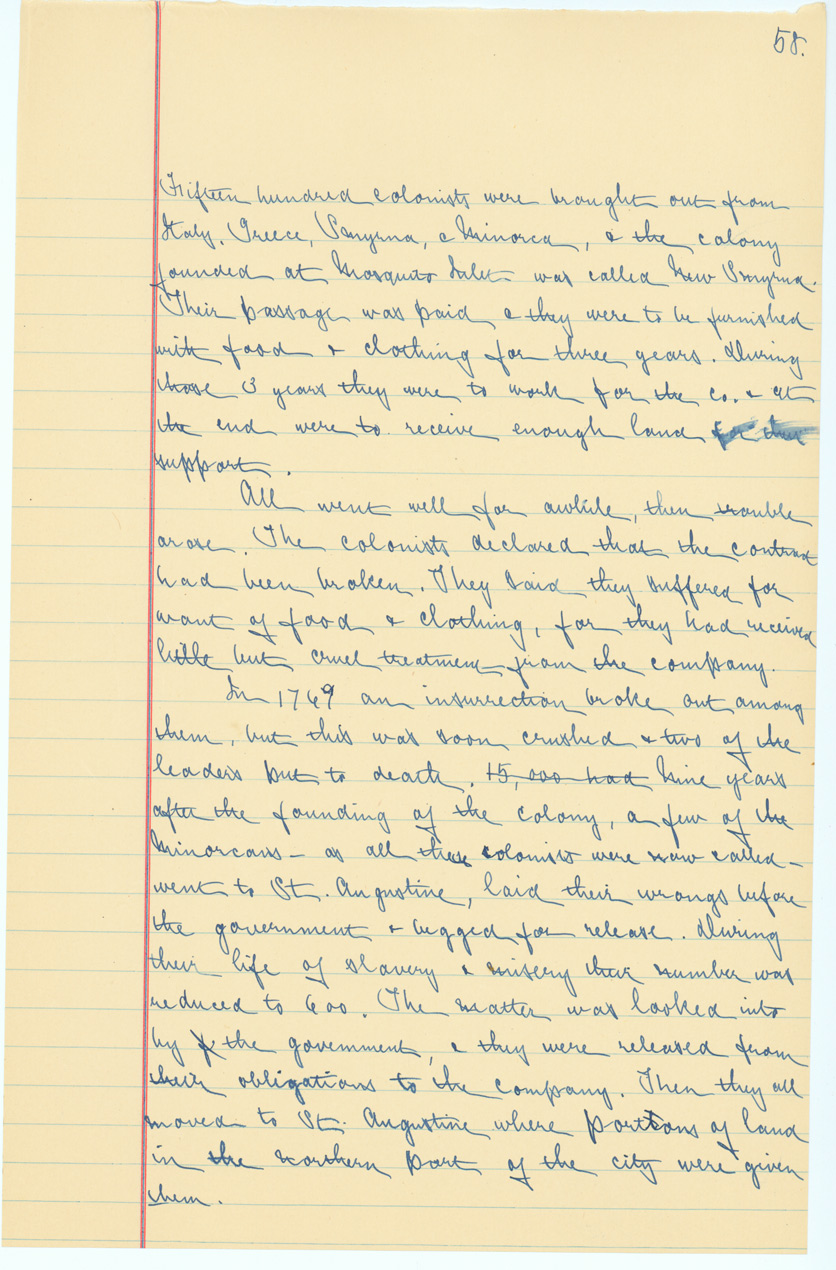 58.
Fifteen hundred colonists were brought out from
Italy, Greece, Smyrna, & Minorca, & the colony
founded at Mosquito Inlet was called New Smyrna.
Their passage was paid & they were to be furnished
with food & clothing for three years. During
those 3 years they were to work for the co. & at
the end were to receive enough land for their
support.
All went well for awhile, then trouble
arose. The colonists declared that the contract
had been broken. They said they suffered for
want of food & clothing, for they had received
little but cruel treatment from the company.
In 1769 an insurrection broke out among
them, but this was soon crushed & two of the
leaders put to death. 15,000 had Nine years
after the founding of the colony, a few of the
Minorcans - as all these colonists were now called -
went to St. Augustine, laid their wrongs before
the government & begged for release. During
their life of slavery & misery their number was
reduced to 600. The matter was looked into
by the government, & they were released from
their obligations to the company. Then they all
moved to St. Augustine where portions of land
in the northern part of the city were given
them.